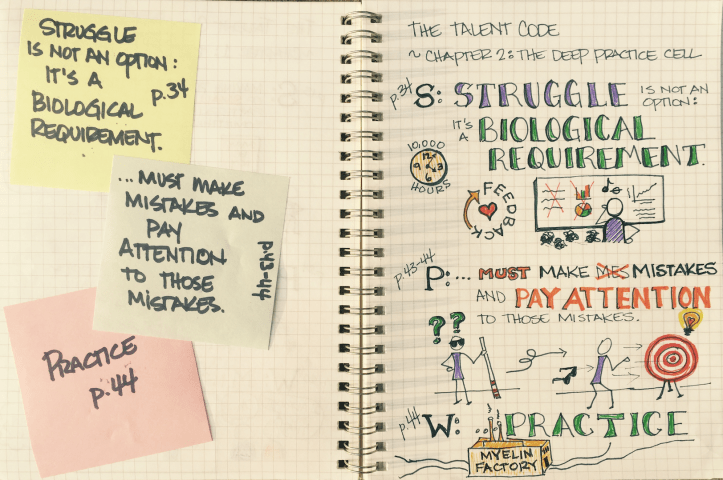 STRUGGLE
IS NOT AN OPTION:
IT'S A
BIOLOGICAL
REQUIREMENT.
p.34
...MUST MAKE
MISTAKES AND
PAY
ATTENTION
TO THOSE
MISTAKES.
p43-44
PRACTICE
p.44
THE TALENT CODE
~ CHAPTER 2: THE DEEP PRACTICE CELL
p.34
S: STRUGGLE IS NOT AN
OPTION:
IT'S
A BIOLOGICAL
REQUIREMENT.
10,000
12
9 3
6
HOURS
FEEDBACK
p.43-44
P: ... MUST MAKE MES MISTAKES
AND PAY ATTENTION
TO THOSE MISTAKES.
? ?
p.44
W: PRACTICE
MYELIN
FACTORY